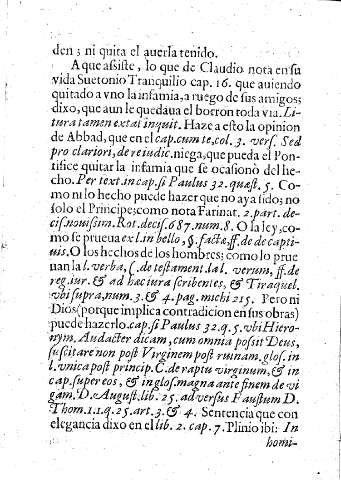 den; ni quita el auerla tenido.
A que assiste, lo que de Claudio nota en su
vida Suetonio Tranquilio cap. 16. que auiendo
quitado a vno la infamia, a ruego de sus amigos;
dixo, que aun le quedaua el borron toda via. Li-
tura tamen extat inquit. Haze a esto la opinion
de Abbad, que en el cap. cum te, col. 3. vers. Sed
pro clariori, de re iudic. niega, que pueda el Pon-
tifice quitar la infamia que se ocasionò del he-
cho. Per text. in cap. si Paulus 32. quæst. 5. Co-
mo ni lo hecho puede hazer que no aya sido; no
solo el Principe; como nota Farinat. 2. part. de-
cis. nouissim. Rot. decis. 687. num. 8. O la ley, co-
mo se prueua ex l. in bello, §. factæ, ff. de de capti-
uis. O los hechos de los hombres; como lo prue
uan la l. verba, C. de testament. la l. verum, ff. de
reg. iur. & ad hæc iura scribentes, & Tiraquel.
vbi supra, num. 3. & 4. pag. michi 215. Pero ni
Dios (porque implica contradicion en sus obras)
puede hazerlo. cap. si Paulus 32. q. 5. vbi Hiero-
nym. Audacter dicam, cum omnia possit Deus,
suscitare non post Virginem post ruinam. glos. in
l. vnica post princip. C. de raptu virginum, & in
cap. super eo s, & in glos. magna ante finem de vi
gam. D. August. lib. 25. aduersus Faustum D.
Thom. 1. 1. q. 25. art. 3. & 4. Sentencia que con
elegancia dixo en el lib. 2. cap. 7. Plinio ibi: In
homi-